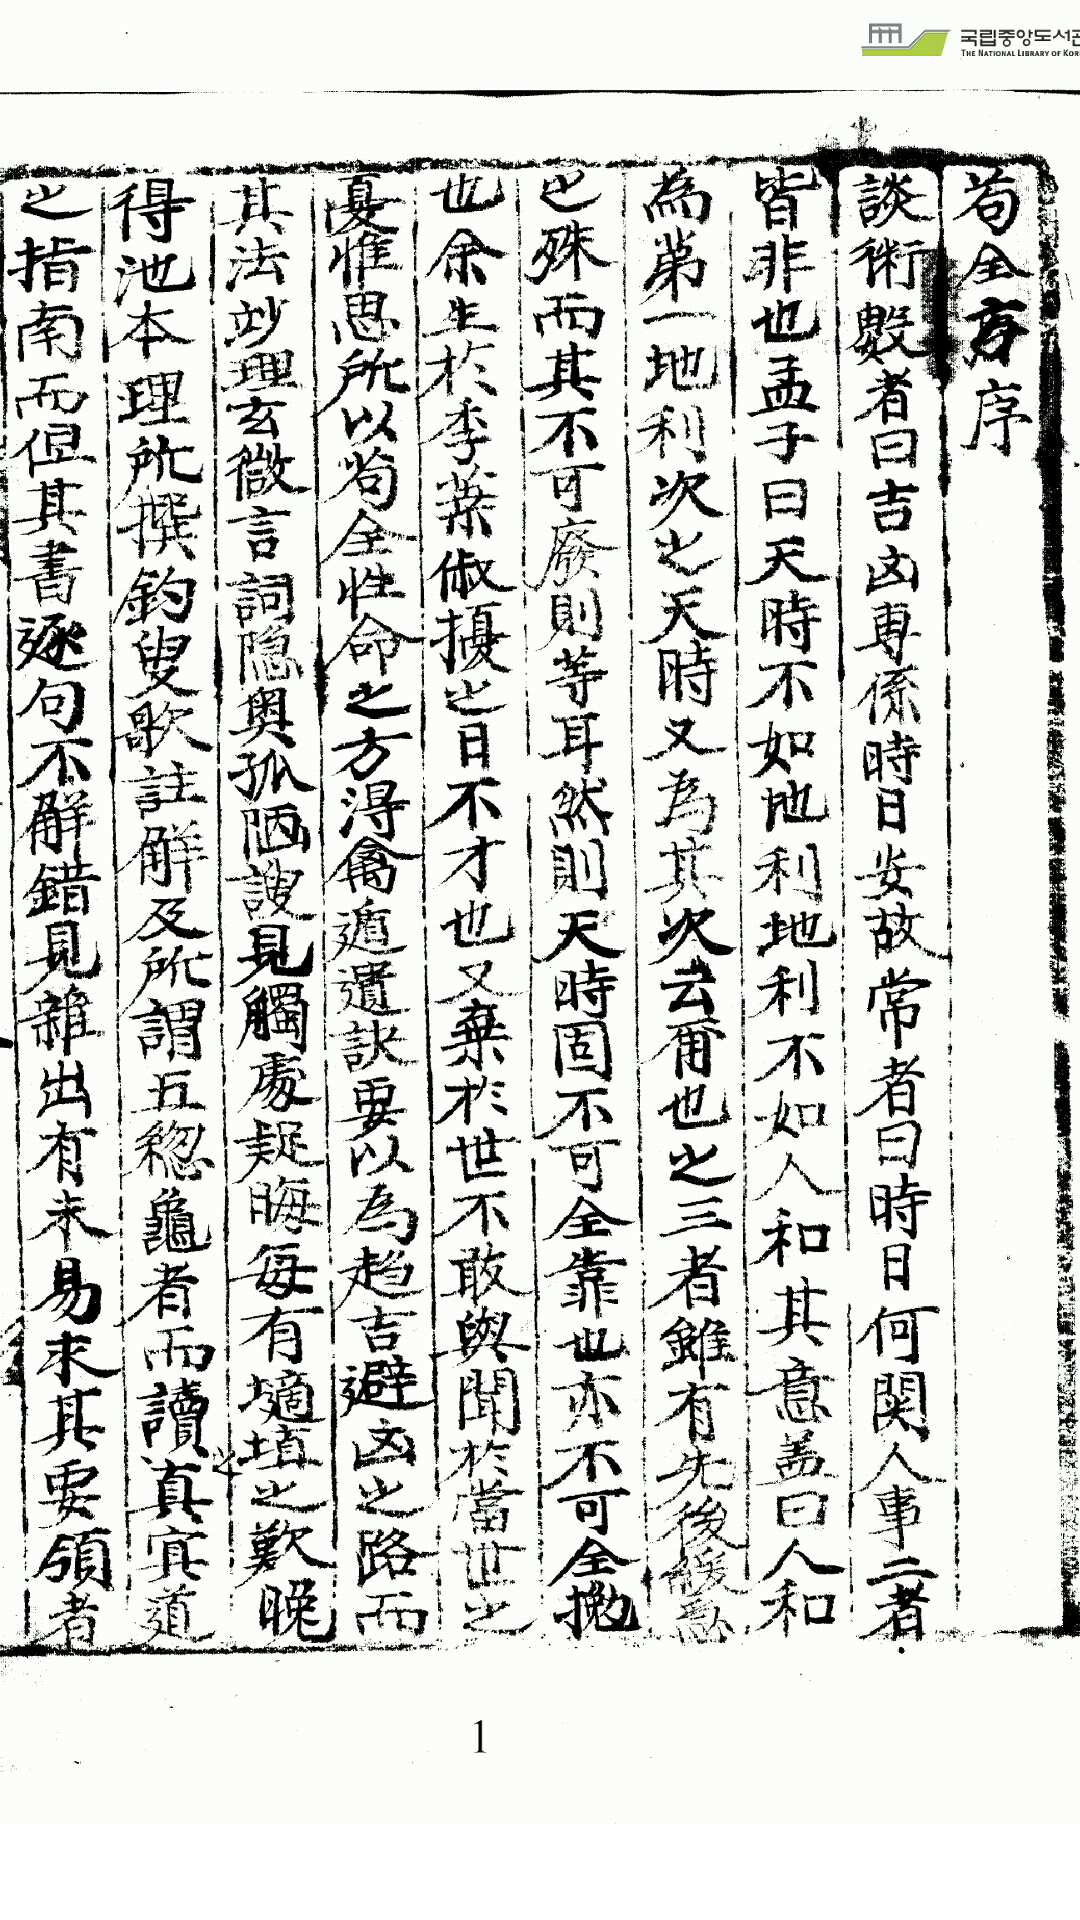 국립중앙도서관
THE NATIONAL LIBRARY OF KOR
苟全方序
談術數者曰吉凶專係時日安故常者曰時日何関人事二者
皆非也孟子曰天時不如地利地利不如人和其意盖曰人和
為第一地利次之天時又為其次云爾也之三者雖有先後緩
已殊而其不可廢則等耳然則天時固不可全靠也亦不可全抛
也余生於季葉俶擾之日不才也又棄於世不敢與聞於當世之
憂惟思所以苟全性命之方淂禽遁遺訣要以為趋吉避凶之路而
其法竗理玄微言詞隐奥孤陋謏見觸處疑晦每有擿埴之歎晚
得池本理所撰釣叟歌註解及所謂五総龜者而讀之真宲道
之指南而但其書逐句不解錯見雜出有未易求其要領者
1